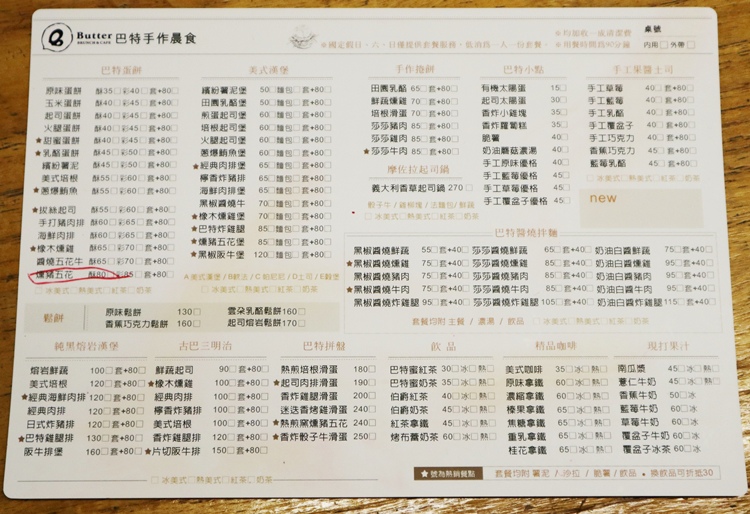 Butter 巴特手作晨食
BRUNCH & CAFE
桌號
內用□ 外帶□
巴特蛋餅
原味蛋餅 酥35□彩40□ 套+80□
玉米蛋餅 酥40□彩45□ 套+80□
起司蛋餅 酥40□彩45□ 套+80□
火腿蛋餅 酥40□彩45□ 套+80□
★甜蜜蛋餅 酥40□彩45□ 套+80□
★乳酪蛋餅 酥45□彩50□ 套+80□
繽紛薯泥 酥45□彩50□ 套+80□
美式培根 酥50□彩55□ 套+80□
★蔥爆鯛魚 酥50□彩55□ 套+80□
★拔絲起司 酥55□彩60□ 套+80□
手打豬肉排 酥60□彩65□ 套+80□
海鮮肉排 酥60□彩65□ 套+80□
★橡木燻雞 酥65□彩70□ 套+80□
醬燒五花牛 酥65□彩70□ 套+80□
燻豬五花 酥80□彩85□ 套+80□
□冰美式□熱美式□紅茶□奶茶
美式漢堡
繽紛薯泥堡 50□麵包□ 套+80□
田園乳酪堡 50□麵包□ 套+80□
煎蛋起司堡 60□麵包□ 套+80□
培根起司堡 60□麵包□ 套+80□
火腿起司堡 60□麵包□ 套+80□
蔥爆鯛魚堡 65□麵包□ 套+80□
★經典肉排堡 65□麵包□ 套+80□
檸香炸豬排 65□麵包□ 套+80□
海鮮肉排堡 65□麵包□ 套+80□
黑胡椒燒牛 70□麵包□ 套+80□
★橡木燻雞堡 70□麵包□ 套+80□
★巴特炸雞堡 85□麵包□ 套+80□
★燻豬五花堡 85□麵包□ 套+80□
★黑椒阪牛堡 120□麵包□ 套+80□
手作捲餅
田園乳酪 65□ 套+80□
鮮蔬燻雞 70□ 套+80□
培根滑蛋 70□ 套+80□
莎莎豬肉 85□ 套+80□
莎莎雞肉 85□ 套+80□
★莎莎牛肉 85□ 套+80□
摩佐拉起司鍋
義大利香草起司鍋 270□
骰子牛/雞根塊/法麵包/鮮蔬
□冰美式□熱美式□紅茶□奶茶
巴特小點
有機太陽蛋 15□
起司太陽蛋 30□
香炸小雞塊 35□
香炸蘿蔔糕 35□
脆薯 40□
奶油蘑菇濃湯 40□
手工原味優格 40□
手工藍莓優格 45□
手工草莓優格 45□
手工覆盆子優格 45□
手工果醬土司
手工草莓 40□ 套+80□
手工藍莓 40□ 套+80□
手工乳酪 40□ 套+80□
手工覆盆子 40□ 套+80□
手工巧克力 40□ 套+80□
香蕉巧克力 45□ 套+80□
藍莓乳酪 45□ 套+80□
□冰美式□熱美式□紅茶□奶茶
new
巴特醬燒拌麵
黑椒醬燒鮮蔬 55□套+40□ 莎莎醬燒鮮蔬 55□套+40□ 奶油白醬鮮蔬 75□套+40□
黑椒醬燒燻雞 75□套+40□ 莎莎醬燒燻雞 75□套+40□ 奶油白醬燻雞 95□套+40□
黑椒醬燒豬肉 75□套+40□ 莎莎醬燒豬肉 75□套+40□ 奶油白醬豬肉 95□套+40□
★黑椒醬燒牛肉 90□套+40□ 莎莎醬燒牛肉 90□套+40□ 奶油白醬牛肉 110□套+40□
黑椒醬燒炸雞腿 95□套+40□ 莎莎醬燒炸雞腿 95□套+40□ 奶油白醬炸雞腿 115□套+40□
套餐均附 主餐 / 濃湯 / 飲品 □冰美式□熱美式□紅茶□奶茶
鬆餅
原味鬆餅 130□ 雲朵乳酪鬆餅 160□
香蕉巧克力鬆餅 160□ 起司熔岩鬆餅 170□
純黑熔岩漢堡
熔岩鮮蔬 100□套+80□
美式培根 100□套+80□
★經典海鮮肉排 120□套+80□
經典肉排 120□套+80□
日式炸豬排 120□套+80□
★巴特雞腿排 130□套+80□
阪牛排堡 160□套+80□
古巴三明治
鮮蔬起司 90□套+80□
★橡木燻雞 100□套+80□
經典肉排 100□套+80□
檸香炸豬排 100□套+80□
美式培根 100□套+80□
香炸雞腿 120□套+80□
★片切阪牛排 150□套+80□
□冰美式□熱美式□紅茶□奶茶
巴特拼盤
熱煎培根滑蛋 180□
★起司肉排滑蛋 190□
香炸雞腿滑蛋 200□
迷迭香烤雞滑蛋 240□
★熱煎窯燻豬五花 240□
★香煎骰子牛滑蛋 250□
飲品
巴特蜜紅茶 30□冰□熱□
巴特蜜奶茶 35□冰□熱□
伯爵紅茶 40□冰□熱□
伯爵奶茶 45□冰□熱□
紅茶拿鐵 45□冰□熱□
烤布蕾奶茶 60□冰□熱□
精品咖啡
美式咖啡 35□冰□熱□
原味拿鐵 45□冰□熱□
濃縮拿鐵 60□冰□熱□
榛果拿鐵 65□冰□熱□
焦糖拿鐵 65□冰□熱□
重乳拿鐵 65□冰□熱□
桂花拿鐵 65□冰□熱□
現打果汁
南瓜漿 45□冰□熱□
薏仁牛奶 45□冰□熱□
香蕉牛奶 50□冰
藍莓牛奶 60□冰
草莓牛奶 60□冰
覆盆子牛奶 60□冰
覆盆子冰茶 60□冰
★號為熱銷餐點 套餐均附 薯泥 / 沙拉 / 脆薯 / 飲品 • 換飲品可折抵30